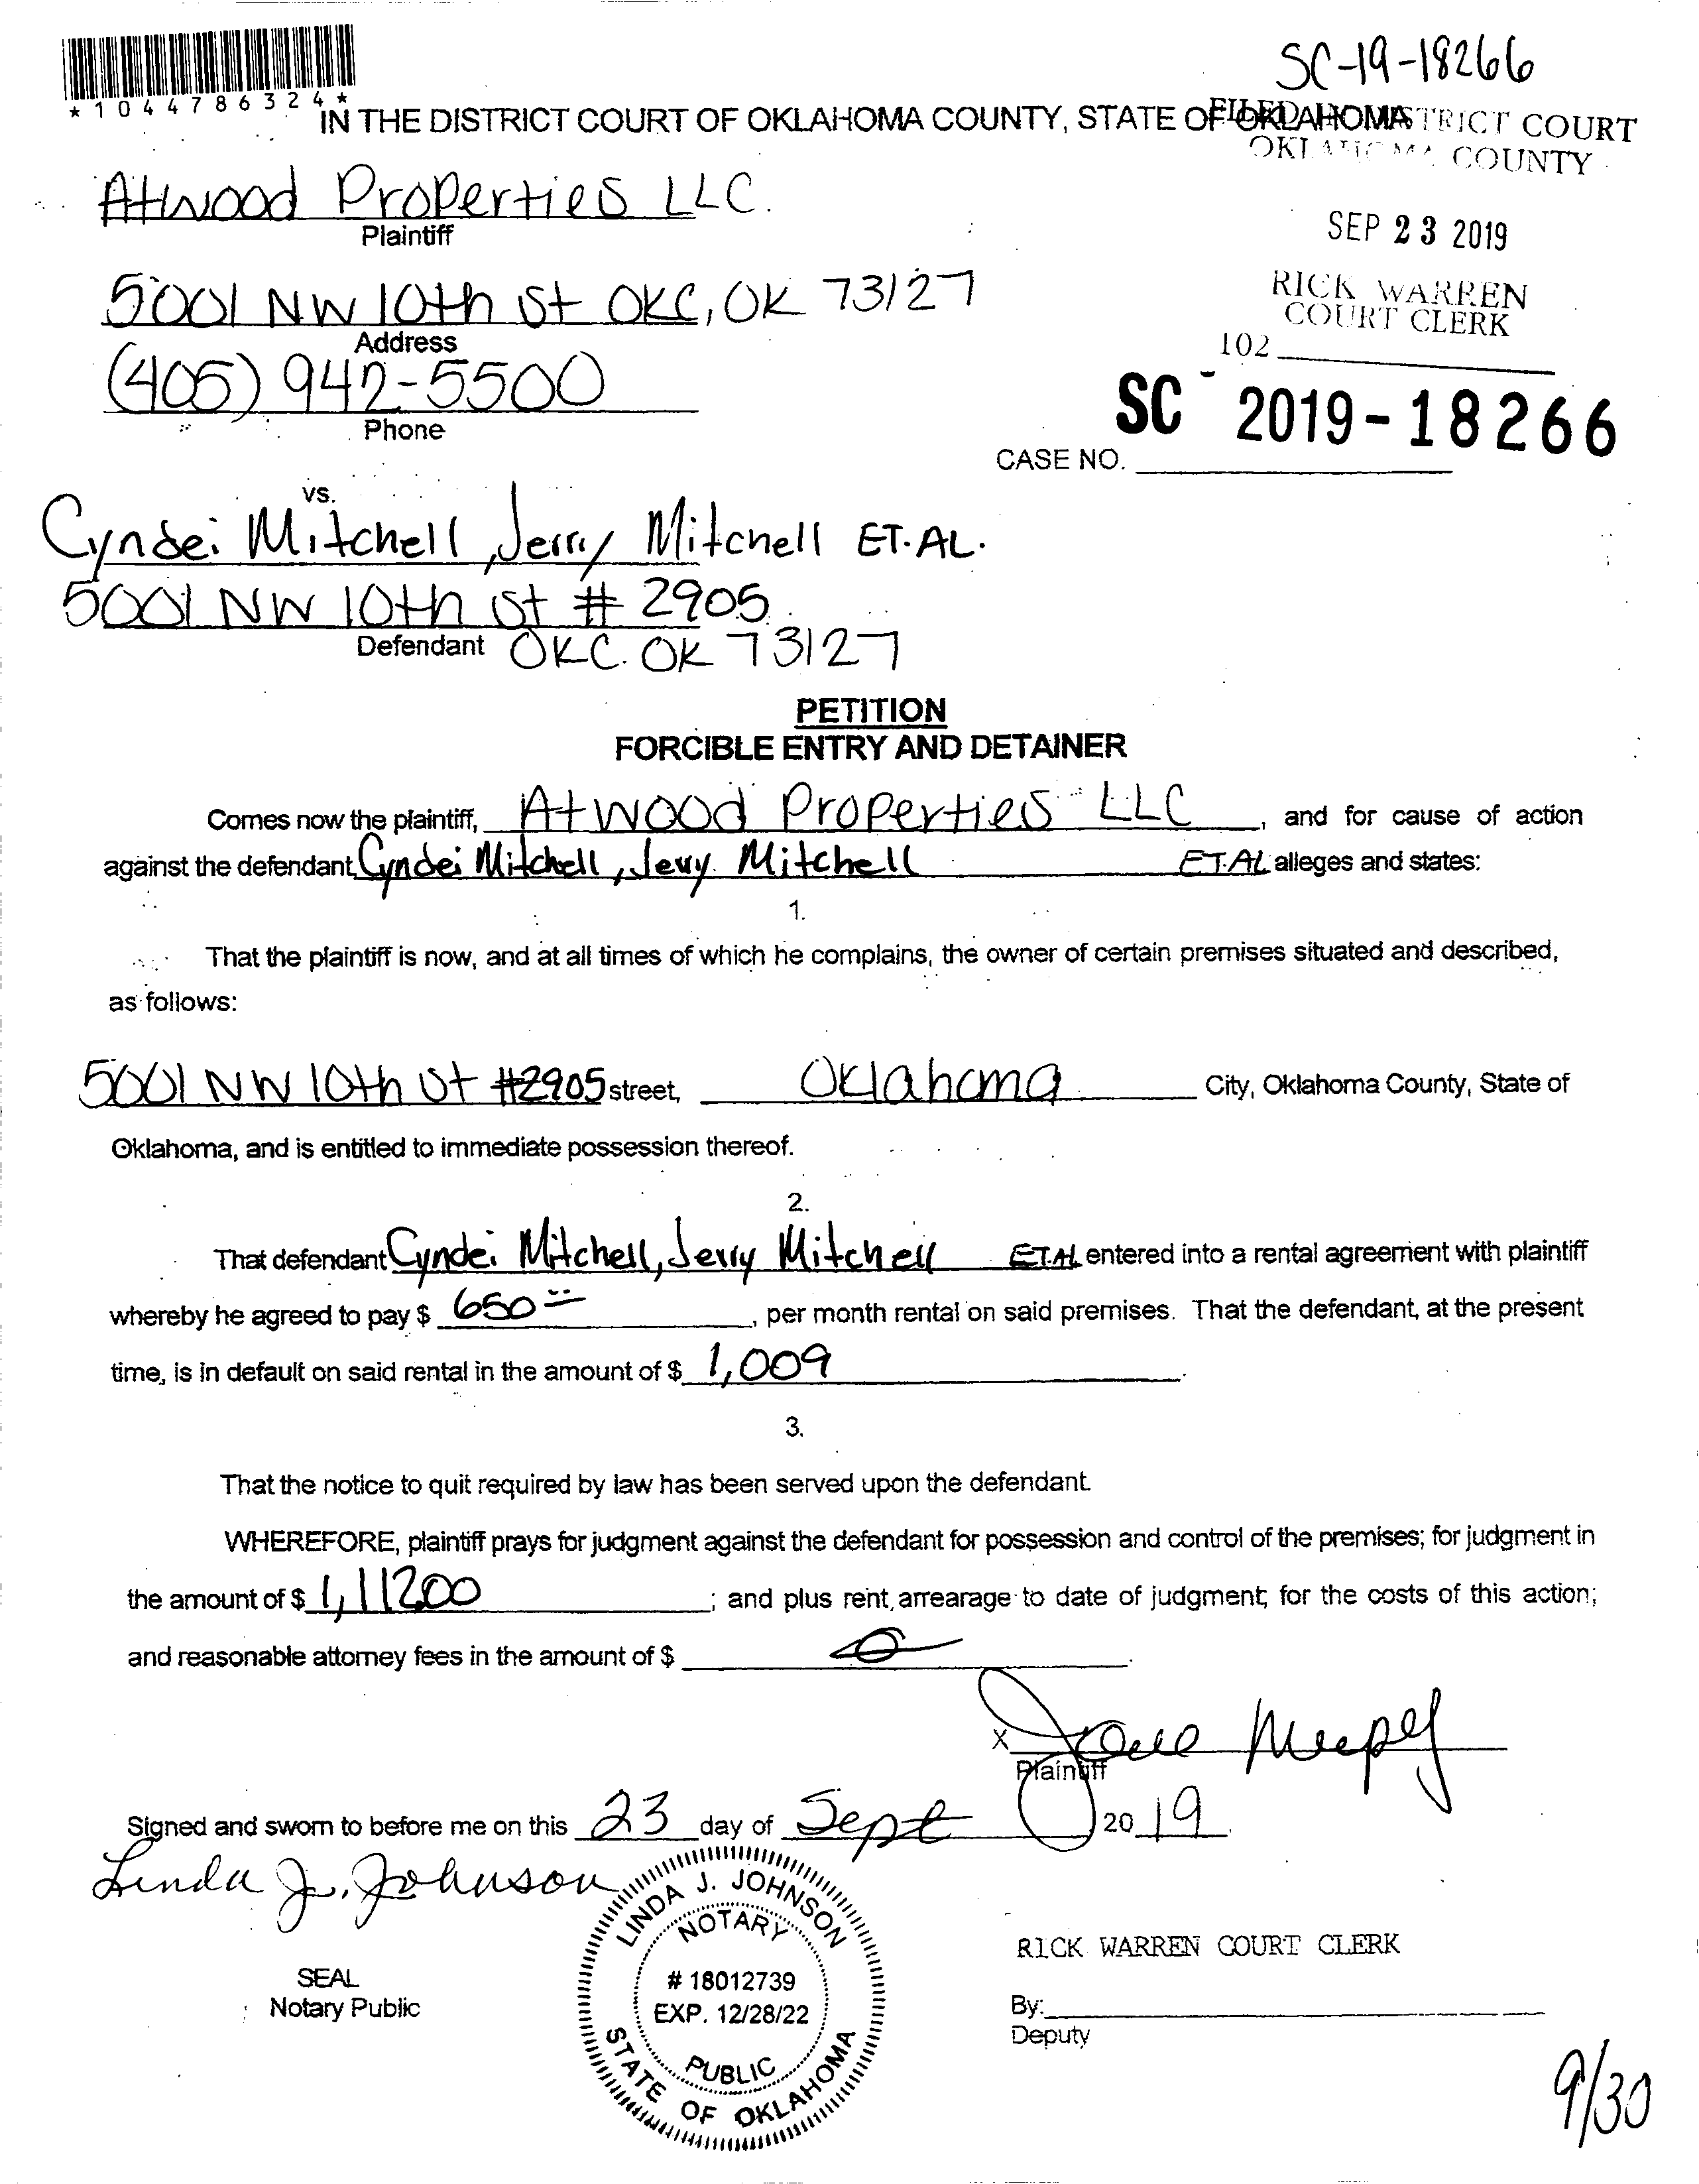 SC-19-18266
*1044786324*
IN THE DISTRICT COURT OF OKLAHOMA COUNTY, STATE OF OKLAHOMA
FILED IN DISTRICT COURT
OKLAHOMA COUNTY
Atwood Properties LLC.
Plaintiff
SEP 23 2019
5001 NW 10th St OKC, OK 73127
Address
RICK WARREN
COURT CLERK
102
(405) 942-5500
Phone
SC 2019-18266
CASE NO.
vs.
Cyndei Mitchell, Jerry Mitchell ET.AL.
5001 NW 10th St # 2905
Defendant OKC. OK 73127
PETITION
FORCIBLE ENTRY AND DETAINER
Comes now the plaintiff, Atwood Properties LLC, and for cause of action
against the defendant Cyndei Mitchell, Jerry Mitchell ET.AL alleges and states:
1.
That the plaintiff is now, and at all times of which he complains, the owner of certain premises situated and described,
as follows:
5001 NW 10th St #2905 street, Oklahoma City, Oklahoma County, State of
Oklahoma, and is entitled to immediate possession thereof.
2.
That defendant Cyndei Mitchell, Jerry Mitchell ET.AL entered into a rental agreement with plaintiff
whereby he agreed to pay $ 650, per month rental on said premises. That the defendant, at the present
time, is in default on said rental in the amount of $ 1,009.
3.
That the notice to quit required by law has been served upon the defendant.
WHEREFORE, plaintiff prays for judgment against the defendant for possession and control of the premises; for judgment in
the amount of $ 1,11200; and plus rent, arrearage to date of judgment; for the costs of this action;
and reasonable attorney fees in the amount of $
X
Plaintiff
Signed and sworn to before me on this 23 day of Sept 2019.
Linda J. Johnson
LINDA J. JOHNSON
NOTARY
# 18012739
EXP. 12/28/22
PUBLIC
STATE OF OKLAHOMA
SEAL
Notary Public
RICK WARREN COURT CLERK
By:
Deputy
9/30